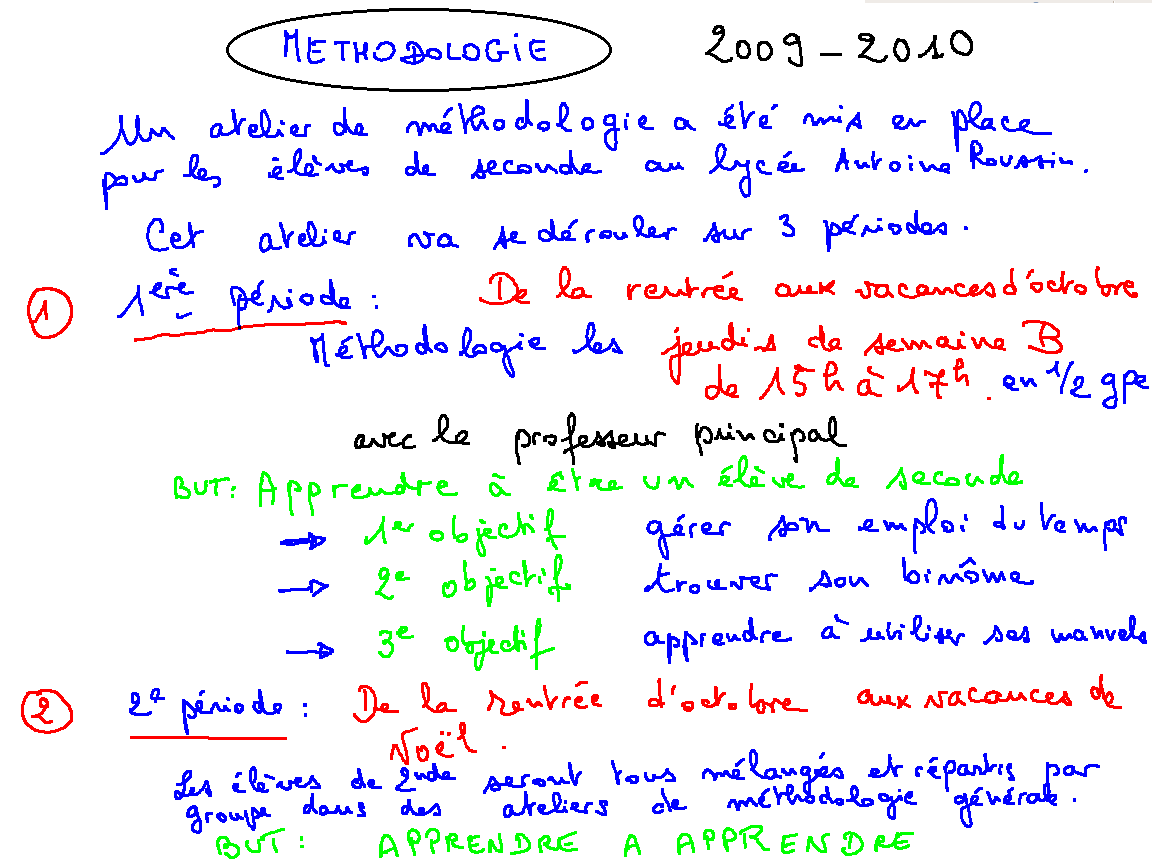 METHODOLOGIE 2009 - 2010
Un atelier de méthodologie a été mis en place
pour les élèves de seconde au lycée Antoine Roussin.
Cet atelier va se dérouler sur 3 périodes.
① 1ère période : De la rentrée aux vacances d'octobre
Méthodologie les jeudis de semaine B
de 15h à 17h. en 1/2 gpe
avec le professeur principal
BUT: Apprendre à être un élève de seconde
→ 1er objectif gérer son emploi du temps
→ 2e objectif trouver son binôme
→ 3e objectif apprendre à utiliser ses manuels
② 2e période : De la rentrée d'octobre aux vacances de
Noël.
Les élèves de 2nde seront tous mélangés et répartis par
groupe dans des ateliers de méthodologie générale.
BUT : APPRENDRE A APPRENDRE